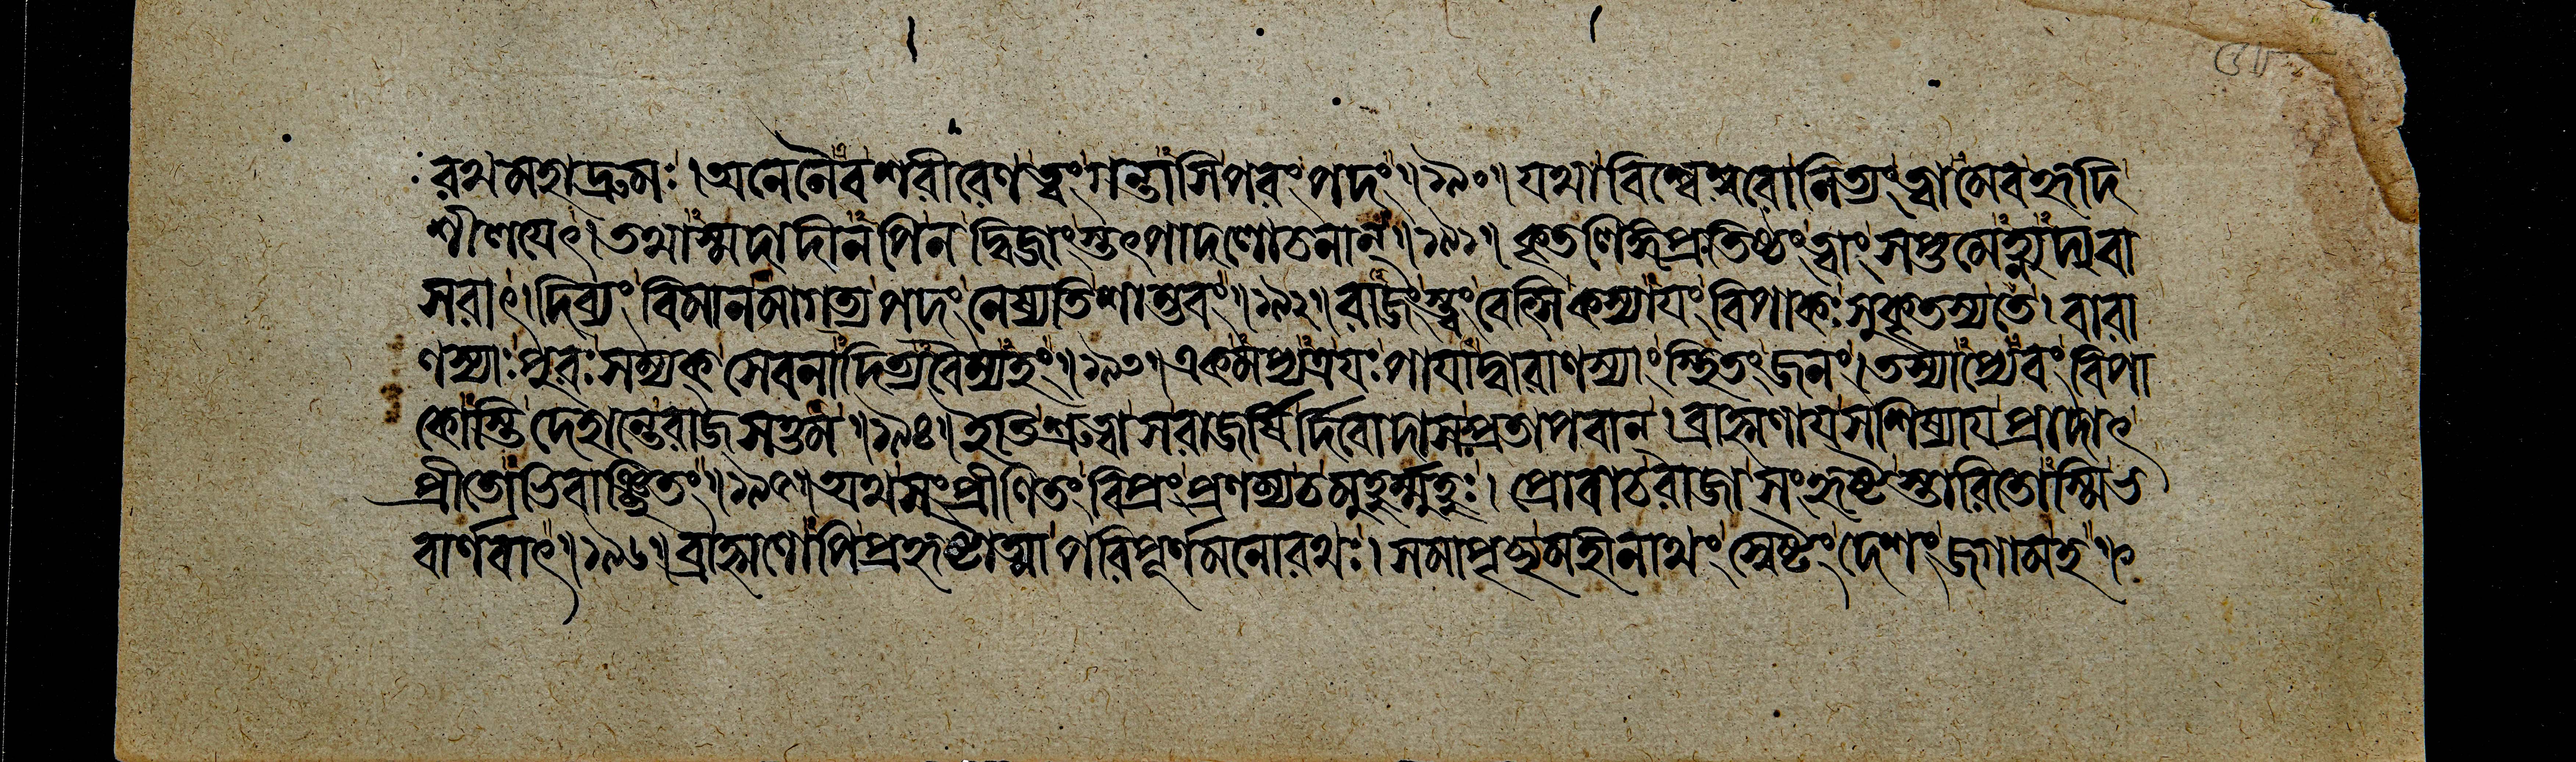 রথমহাদ্রুমঃ। অনেনৈব শরীরেণ ত্বং গন্তাসি পরং পদং॥১৯০॥ যথা বিশ্বেশ্বরো নিত্যং ত্বামেব হৃদি
শীলয়েৎ। তথাস্মদাদীনপি ন দ্বিজাংস্ত্বৎপাদশোচনান্॥১৯১॥ কৃতলিঙ্গপ্রতিষ্ঠং ত্বাং সপ্তমেহ্ন্যদ্যবা
সরাৎ। দিব্যং বিমানমাগত্য পদং নেষ্যতি শাম্ভবং॥১৯২॥ রাজংস্ত্বং বেৎসি কস্যায়ং বিপাকঃ সুকৃতস্য তে। বারা
ণস্যাঃ পুরঃ সম্যক্ সেবনাদিত্যবৈম্যহং॥১৯৩॥ একমপ্যত্র যঃ পায়াদ্বারাণস্যাং স্থিতং জনং। তস্যাপ্যেবং বিপা
কোস্তি দেহান্তে রাজসত্তম॥১৯৪॥ ইতি শ্রুত্বা স রাজর্ষির্দিবোদাসঃ প্রতাপবান। ব্রাহ্মণায় সশিষ্যায় প্রাদাৎ
প্রীতোভিবাঞ্ছিতং॥১৯৫॥ অথ সংপ্রীণিতং বিপ্রং প্রণম্য চ মুহুর্ম্মুহুঃ। প্রোবাচ রাজা সংহৃষ্টস্তারিতোস্মি ভ
বার্ণবাৎ॥১৯৬॥ ব্রাহ্মণোপি প্রহৃষ্টাত্মা পরিপূর্ণমনোরথঃ। সমাপৃচ্ছ্য মহীনাথং স্বেষ্টং দেশং জগাম হ॥